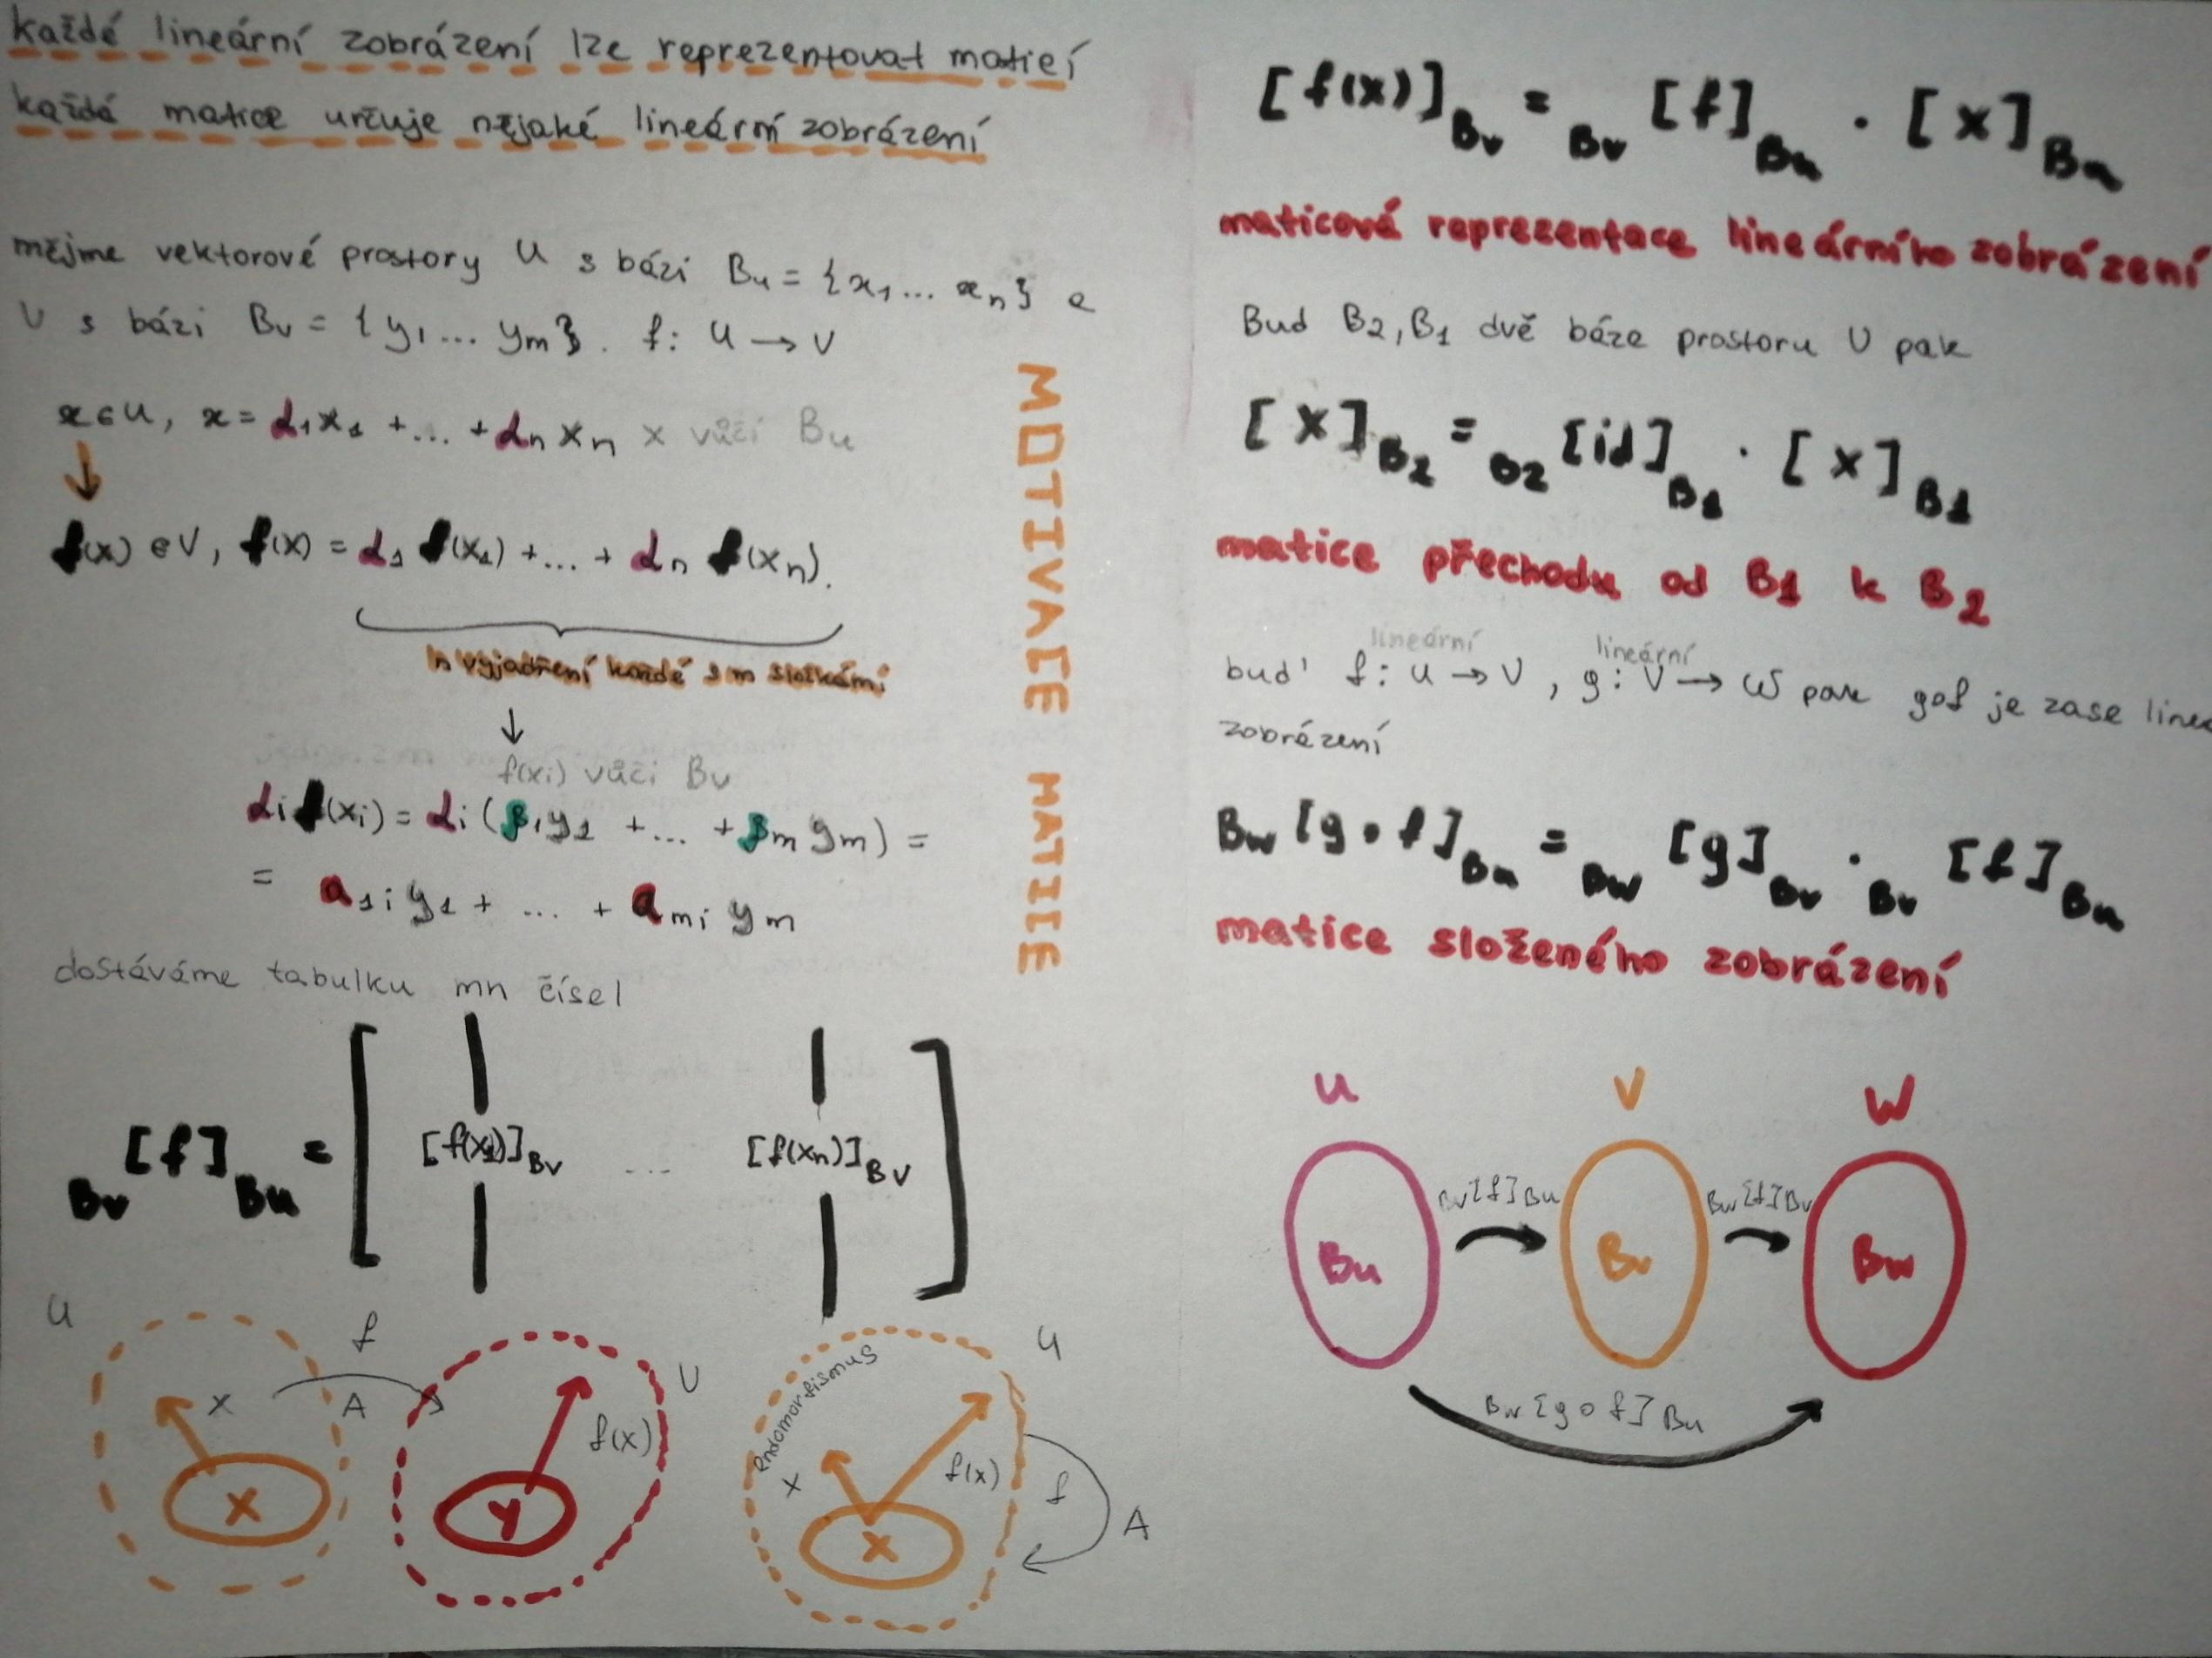 každé lineární zobrázení lze reprezentovat maticí
každá matice určuje nějaké lineární zobrázení
mějme vektorové prostory U s bázi Bu = {x1 ... xn} a
V s bázi Bv = {y1 ... ym}. f: U → V
x∈U, x = α1x1 + ... + αn xn x vůči Bu
↓
f(x) ∈ V, f(x) = α1 f(x1) + ... + αn f(xn).
n vyjadření každé s m složkámi
↓
f(xi) vůči Bv
αi f(xi) = αi (β1y1 + ... + βm ym) =
= a1i y1 + ... + ami ym
dostáváme tabulku mn čísel
Bv [f] Bu = [ [f(x1)]Bv ... [f(xn)]Bv ]
U f V
x A f(x)
X Y
endomorfismus U
x f(x) f A
X
MOTIVACE MATICE
[f(x)]Bv = Bv [f] Bu · [x] Bu
maticová reprezentace lineárního zobrázení
Bud B2, B1 dvě báze prostoru V pak
[x]B2 = B2 [id] B1 · [x] B1
matice přechodu od B1 k B2
lineární lineární
buď f: U → V, g: V → W pak g∘f je zase linea
zobrázení
Bw [g∘f] Bu = Bw [g] Bv · Bv [f] Bu
matice složeného zobrázení
U V W
Bv[f]Bu Bw[f]Bv
Bu Bv Bw
Bw [g∘f] Bu